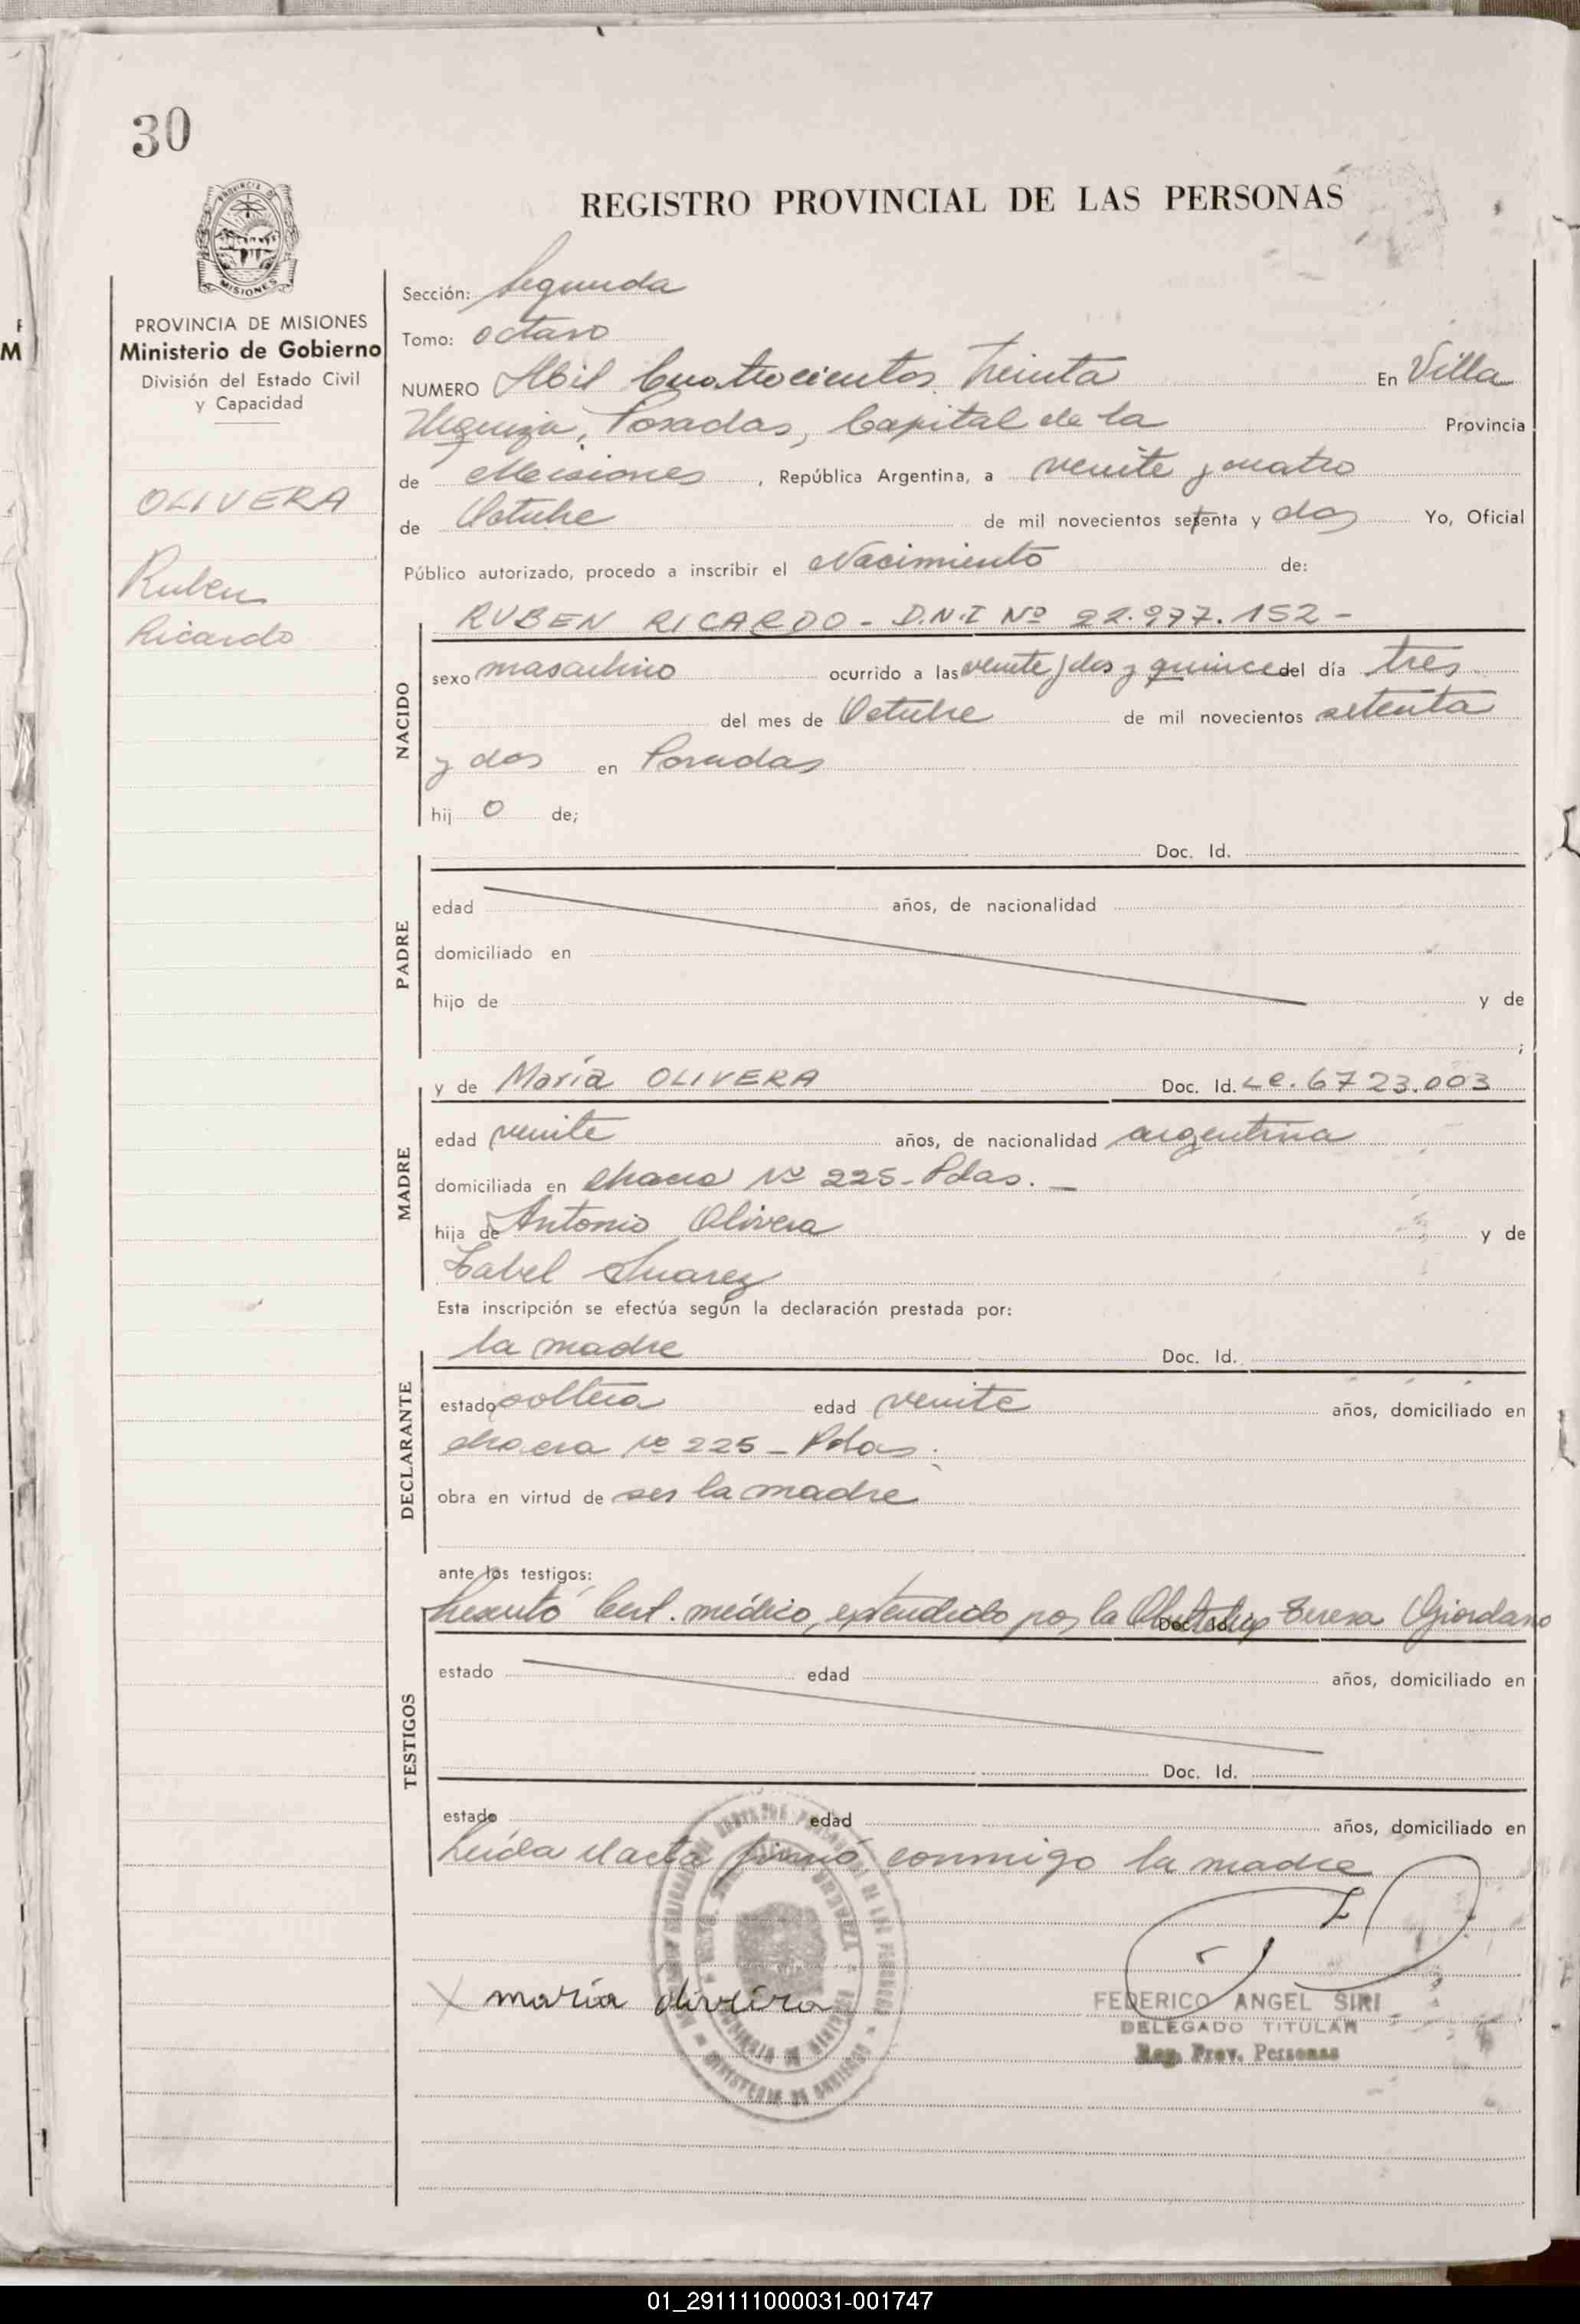 30
PROVINCIA DE
MISIONES
PROVINCIA DE MISIONES
Ministerio de Gobierno
División del Estado Civil
y Capacidad
OLIVERA
Ruben
Ricardo
REGISTRO PROVINCIAL DE LAS PERSONAS
Sección: Segunda
Tomo: octavo
NUMERO Mil Cuatrocientos Treinta En Villa
Urquiza, Posadas, Capital de la Provincia
de Misiones, República Argentina, a veinte y cuatro
de Octubre de mil novecientos setenta y dos Yo, Oficial
Público autorizado, procedo a inscribir el Nacimiento de:
RUBEN RICARDO - D.N.I Nº 22.977.152 -
NACIDO
sexo masculino ocurrido a las veinte y dos y quince del día tres
del mes de Octubre de mil novecientos setenta
y dos en Posadas
hij o de;
Doc. Id.
PADRE
edad años, de nacionalidad
domiciliado en
hijo de y de
;
y de María OLIVERA Doc. Id. LC. 6723.003
MADRE
edad veinte años, de nacionalidad argentina
domiciliada en chacra Nº 225 - Pdas. -
hija de Antonio Olivera y de
Isabel Suarez
Esta inscripción se efectúa según la declaración prestada por:
la madre Doc. Id.
DECLARANTE
estado soltera edad veinte años, domiciliado en
chacra Nº 225 - Pdas.
obra en virtud de ser la madre
ante los testigos:
Presentó Cert. médico, extendido por la Obstetriz Teresa Giordano
Doc. Id.
TESTIGOS
estado edad años, domiciliado en
Doc. Id.
estado edad años, domiciliado en
Leída el acta firmó conmigo la madre
X maría oliveira
FEDERICO ANGEL SIRI
DELEGADO TITULAR
Reg. Prov. Personas
01_291111000031-001747